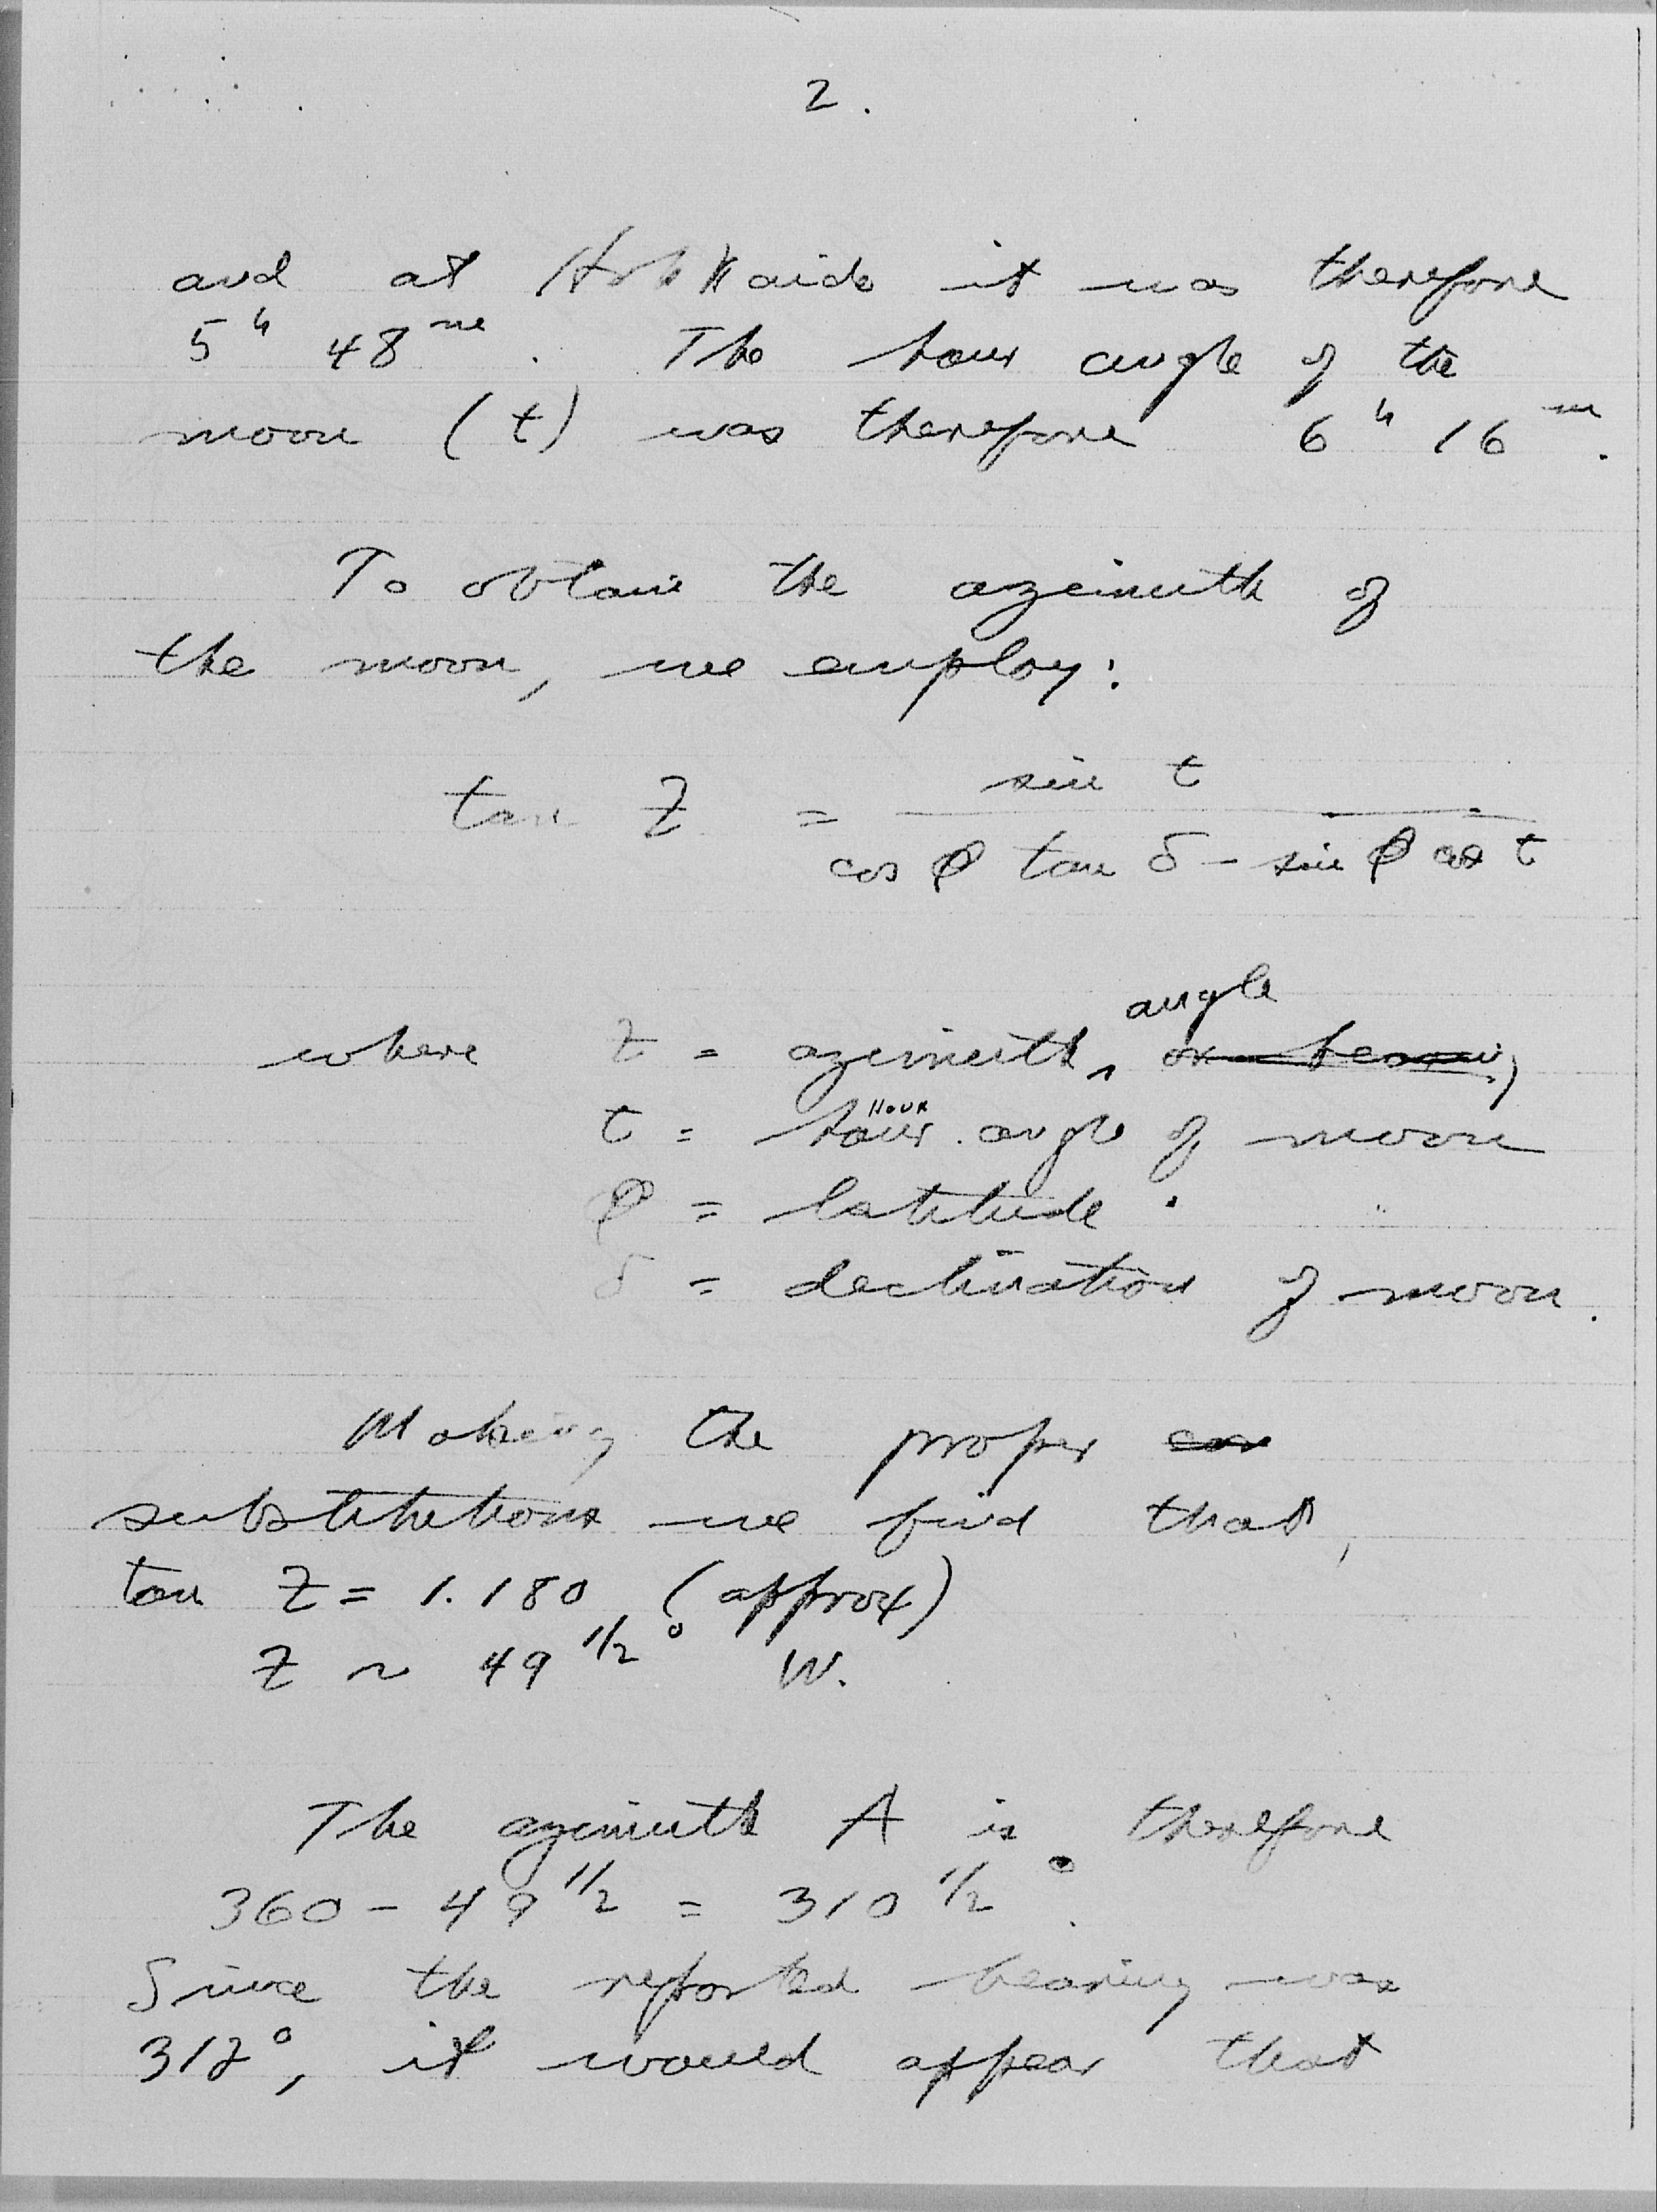 2.
and at Hokkaido it was therefore
5ʰ 48ᵐ. The hour angle of the
moon (t) was therefore 6ʰ 16ᵐ.
To obtain the azimuth of
the moon, we employ:
tan Z = sin t
cos φ tan δ - sin φ cos t
angle
where Z = azimuth ‸ or bearing
Hour
t = hour angle of moon
φ = latitude
δ = declination of moon.
Making the proper
substitutions we find that,
tan Z = 1.180 (approx)
Z ~ 49 1/2° W.
The azimuth A is therefore
360 - 49 1/2 = 310 1/2°.
Since the reported bearing was
312°, it would appear that